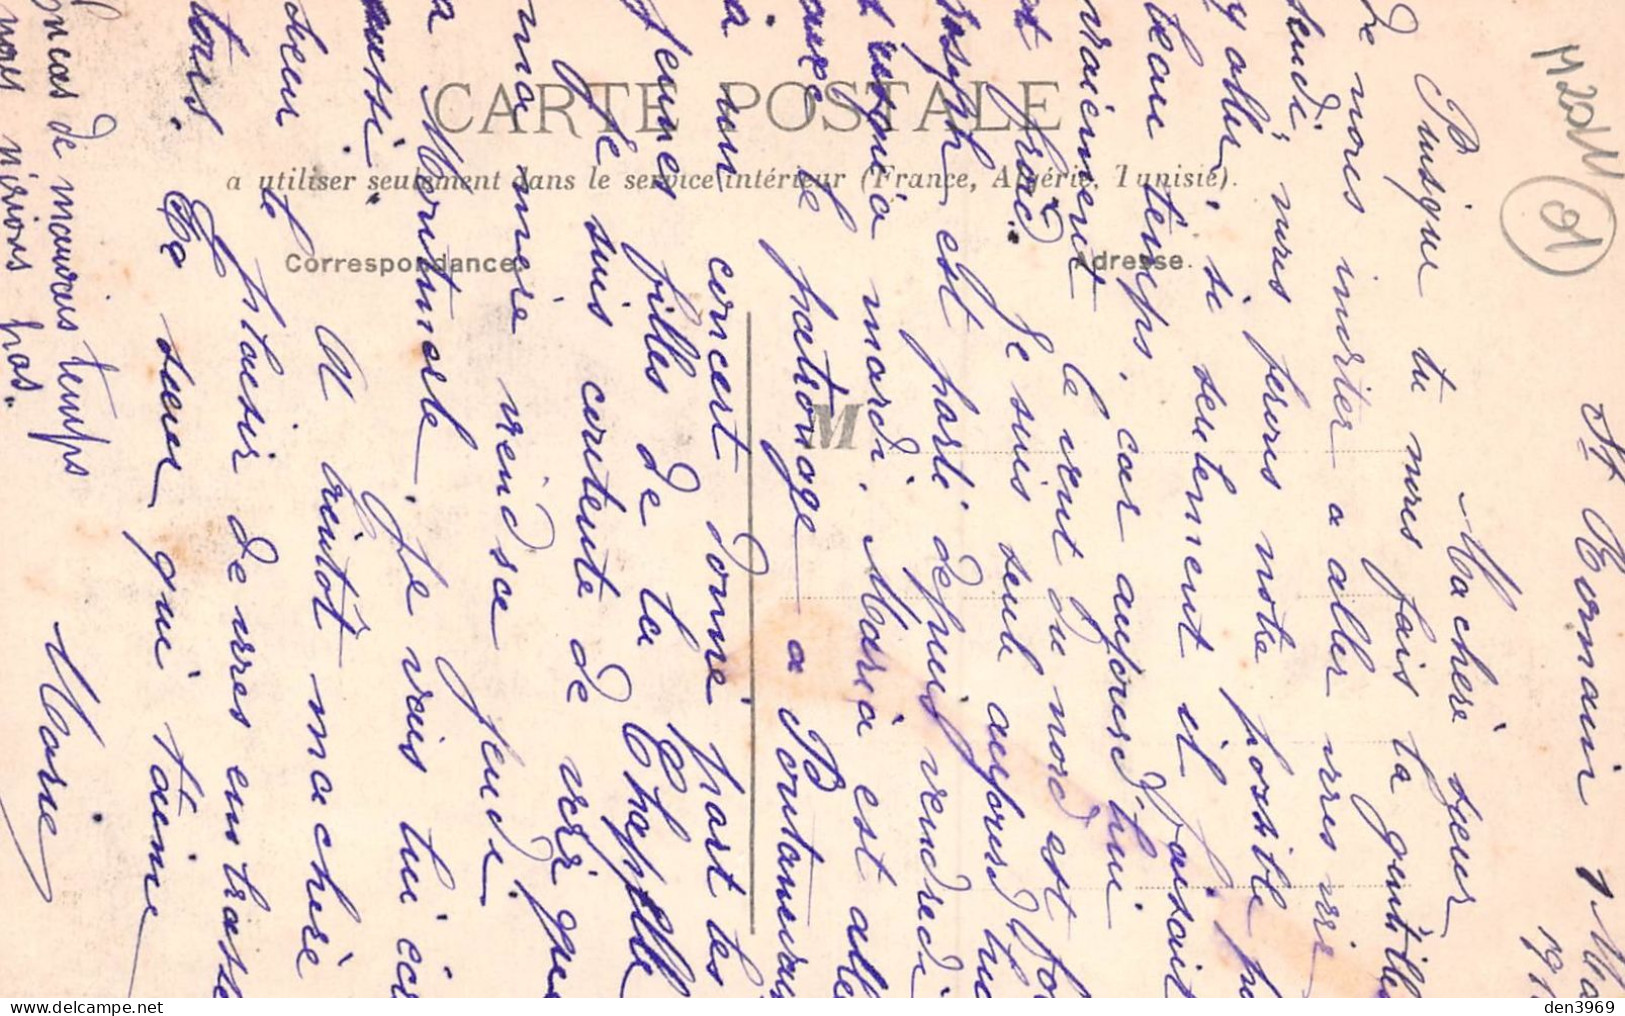 CARTE POSTALE
a utiliser seulement dans le service intérieur (France, Algérie, Tunisie).
Correspondance
Adresse.
M
M20M
21
St Romain 1 Ma
191
Ma chère sœur
Puisque tu nous fais ta gentille
de nous inviter a aller vous voir
jeudi, nous ferons notre possible po
y aller, si seulement il faisait
beau temps, car aujourd'hui
vraiement le vent du nord est fo
et froid. Je suis seule aujourd'hui
Joseph est parti depuis vendredi
et mardi. Maria est allé
avec le patronage a Pontanevau
a un concert donné part les
jeunes filles de la Chapelle
Je suis contente de voir que
ma mère viendra jeudi.
a Moritmarte. Je vais lui écr
aussi.
A bientôt ma chère
sœur le plaisir de vous embrasse
tous. Ta sœur qui t'aime
Marie
en cas de mauvais temps
nous n'irons pas.
den3969